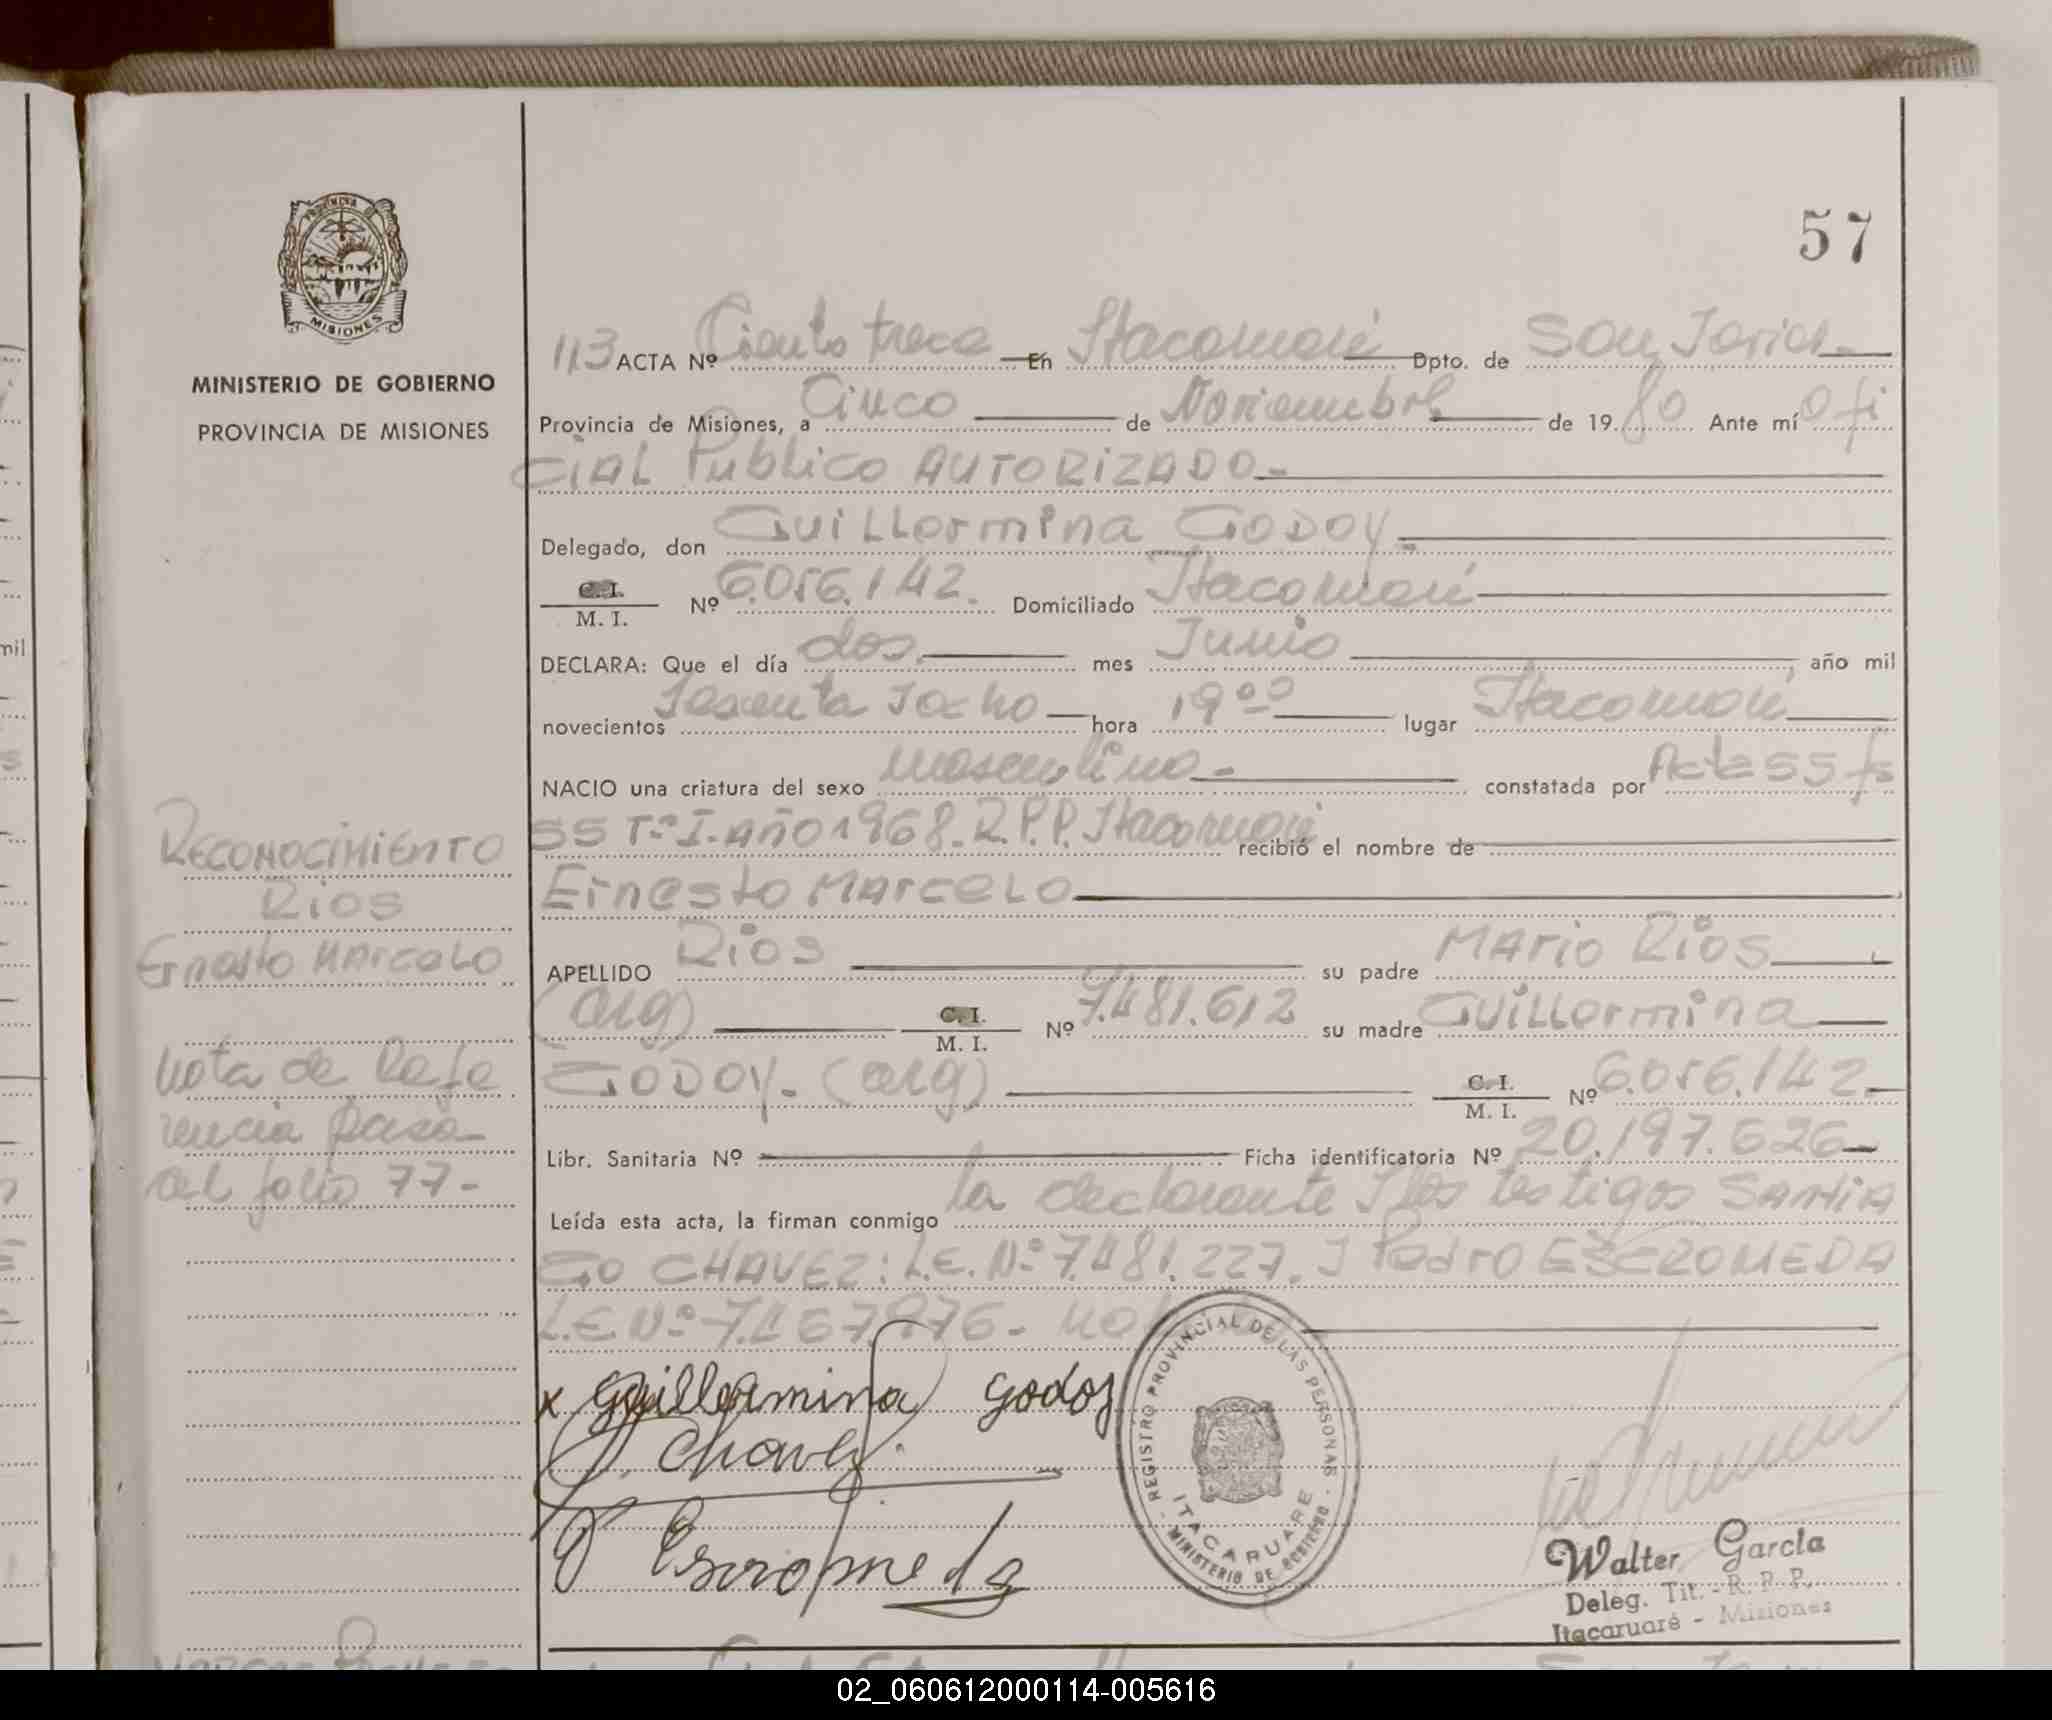 57
PROVINCIA DE
MISIONES
MINISTERIO DE GOBIERNO
PROVINCIA DE MISIONES
113 ACTA Nº Ciento trece En Itacaruaré Dpto. de San Javier
Provincia de Misiones, a Cinco de Noviembre de 1980 Ante mí Ofi
CIAL Publico AUTORIZADO-
Delegado, don Guillermina Godoy
C.I. / M. I. Nº 6.056.142. Domiciliado Itacaruaré
DECLARA: Que el día dos mes Junio, año mil
novecientos Sesenta y ocho hora 19°° lugar Itacaruaré
NACIO una criatura del sexo masculino - constatada por Acta 55 fs
55 Tº I. Año 1968. R.P.P. Itacaruaré recibió el nombre de
Ernesto MARCELO
APELLIDO Rios su padre MARIO Rios
(arg) C. I. / M. I. Nº 7.481.612 su madre Guillermina
GODOY- (arg) C. I. / M. I. Nº 6.056.142
Libr. Sanitaria Nº Ficha identificatoria Nº 20.197.626
Leída esta acta, la firman conmigo la declarante y los testigos SANTIA
GO CHAVEZ: L.E. Nº 7.481.227. y Pedro ESCROMEDA
L.E. Nº 7.467.976-
x Guillermina Godoy
Chavez
P Escromeda
REGISTRO PROVINCIAL DE LAS PERSONAS
ITACARUARE
MINISTERIO DE GOBIERNO
Walter García
Deleg. Tit. - R. P. P.
Itacaruaré - Misiones
RECONOCIMIENTO
Rios
Ernesto MARCELO
Nota de Refe
rencia pasa
al folio 77-
mil
02_060612000114-005616